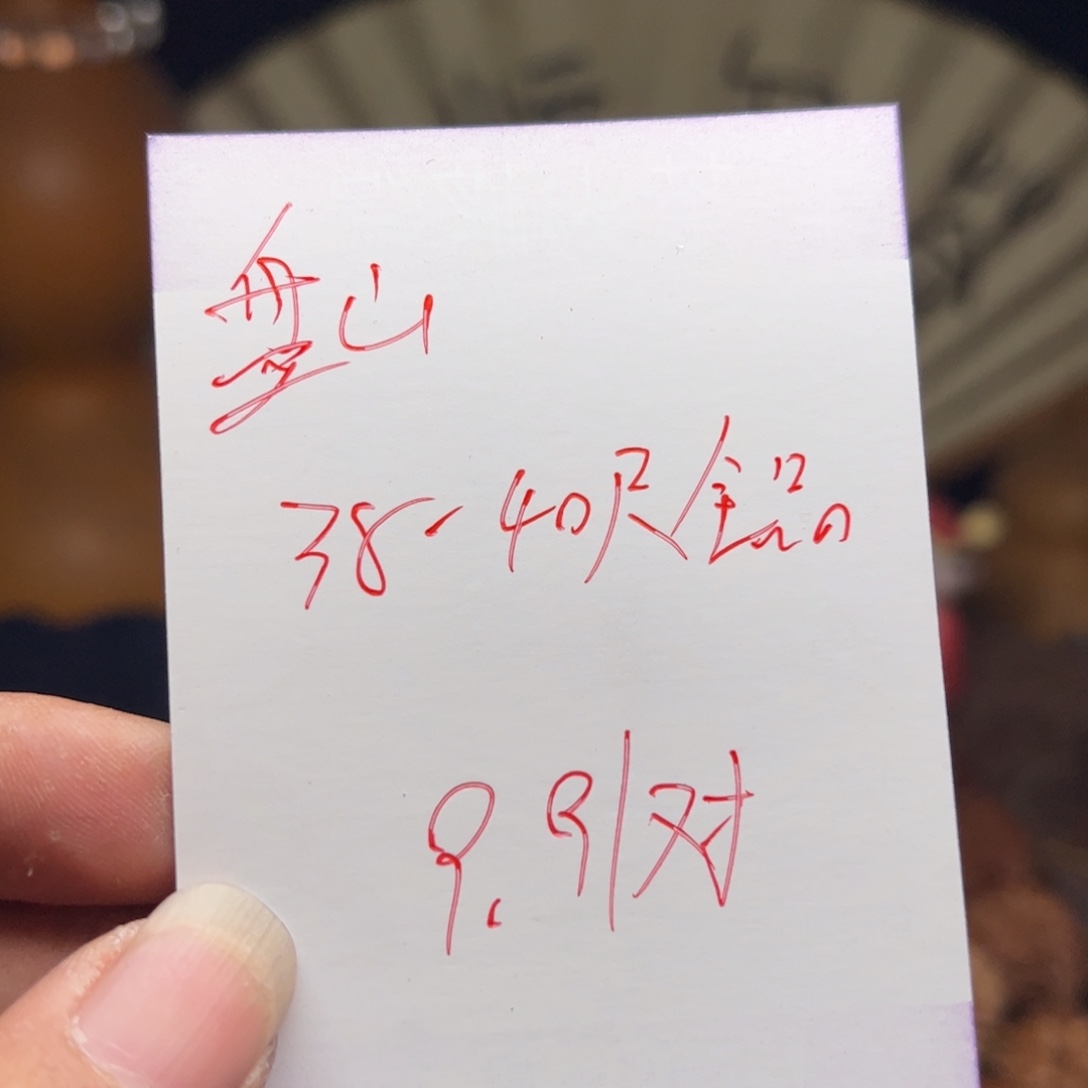 盘山
38-40尺全品
9.9/对